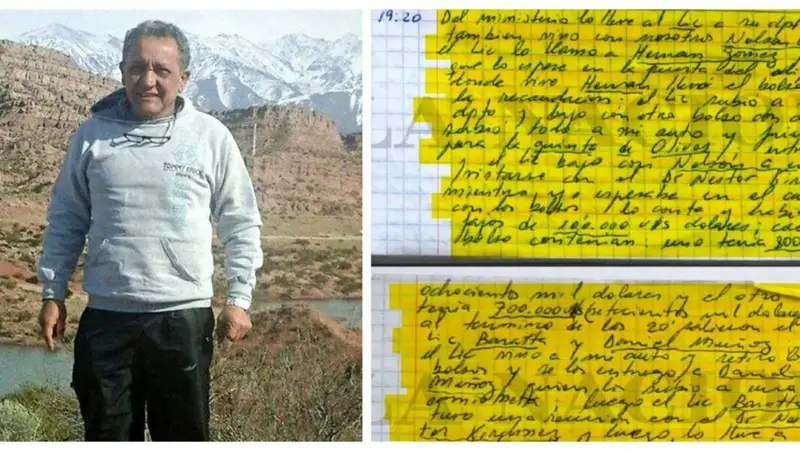 19:20
Del ministerio lo lleve al Lic a su dpto
tambien vino con nosotros Nelson
el Lic lo llamo a Hernan Gomez
que lo espere en la puerta del
donde vive Hernan, llevó el bolso
la recaudacion; el Lic subio a
dpto y bajo con otro bolso
subio todo a mi auto y
para la quinta de Olivos
y el Lic bajo con Nelson a
con el Dr Nestor
mientras yo esperaba en el
con los bolsos, lo conto y habia
fajos de 100.000 U$S dolares; cada
bolso contenian: uno tenia 800
ochociento mil dolares y el otro
tenia 700.000 U$S (setecientos mil dolares
al termino de los 20' salieron el
Lic Baratta y Daniel Muñoz
el Lic vino a mi auto y retiro los
bolsos y se los entrego a Daniel
Muñoz, quien los subio a una
camioneta luego el Lic Baratta
tuvo una reunion con el Dr Nes-
tor Kirchner y luego, lo lleve a
LA NACION
LA NACION